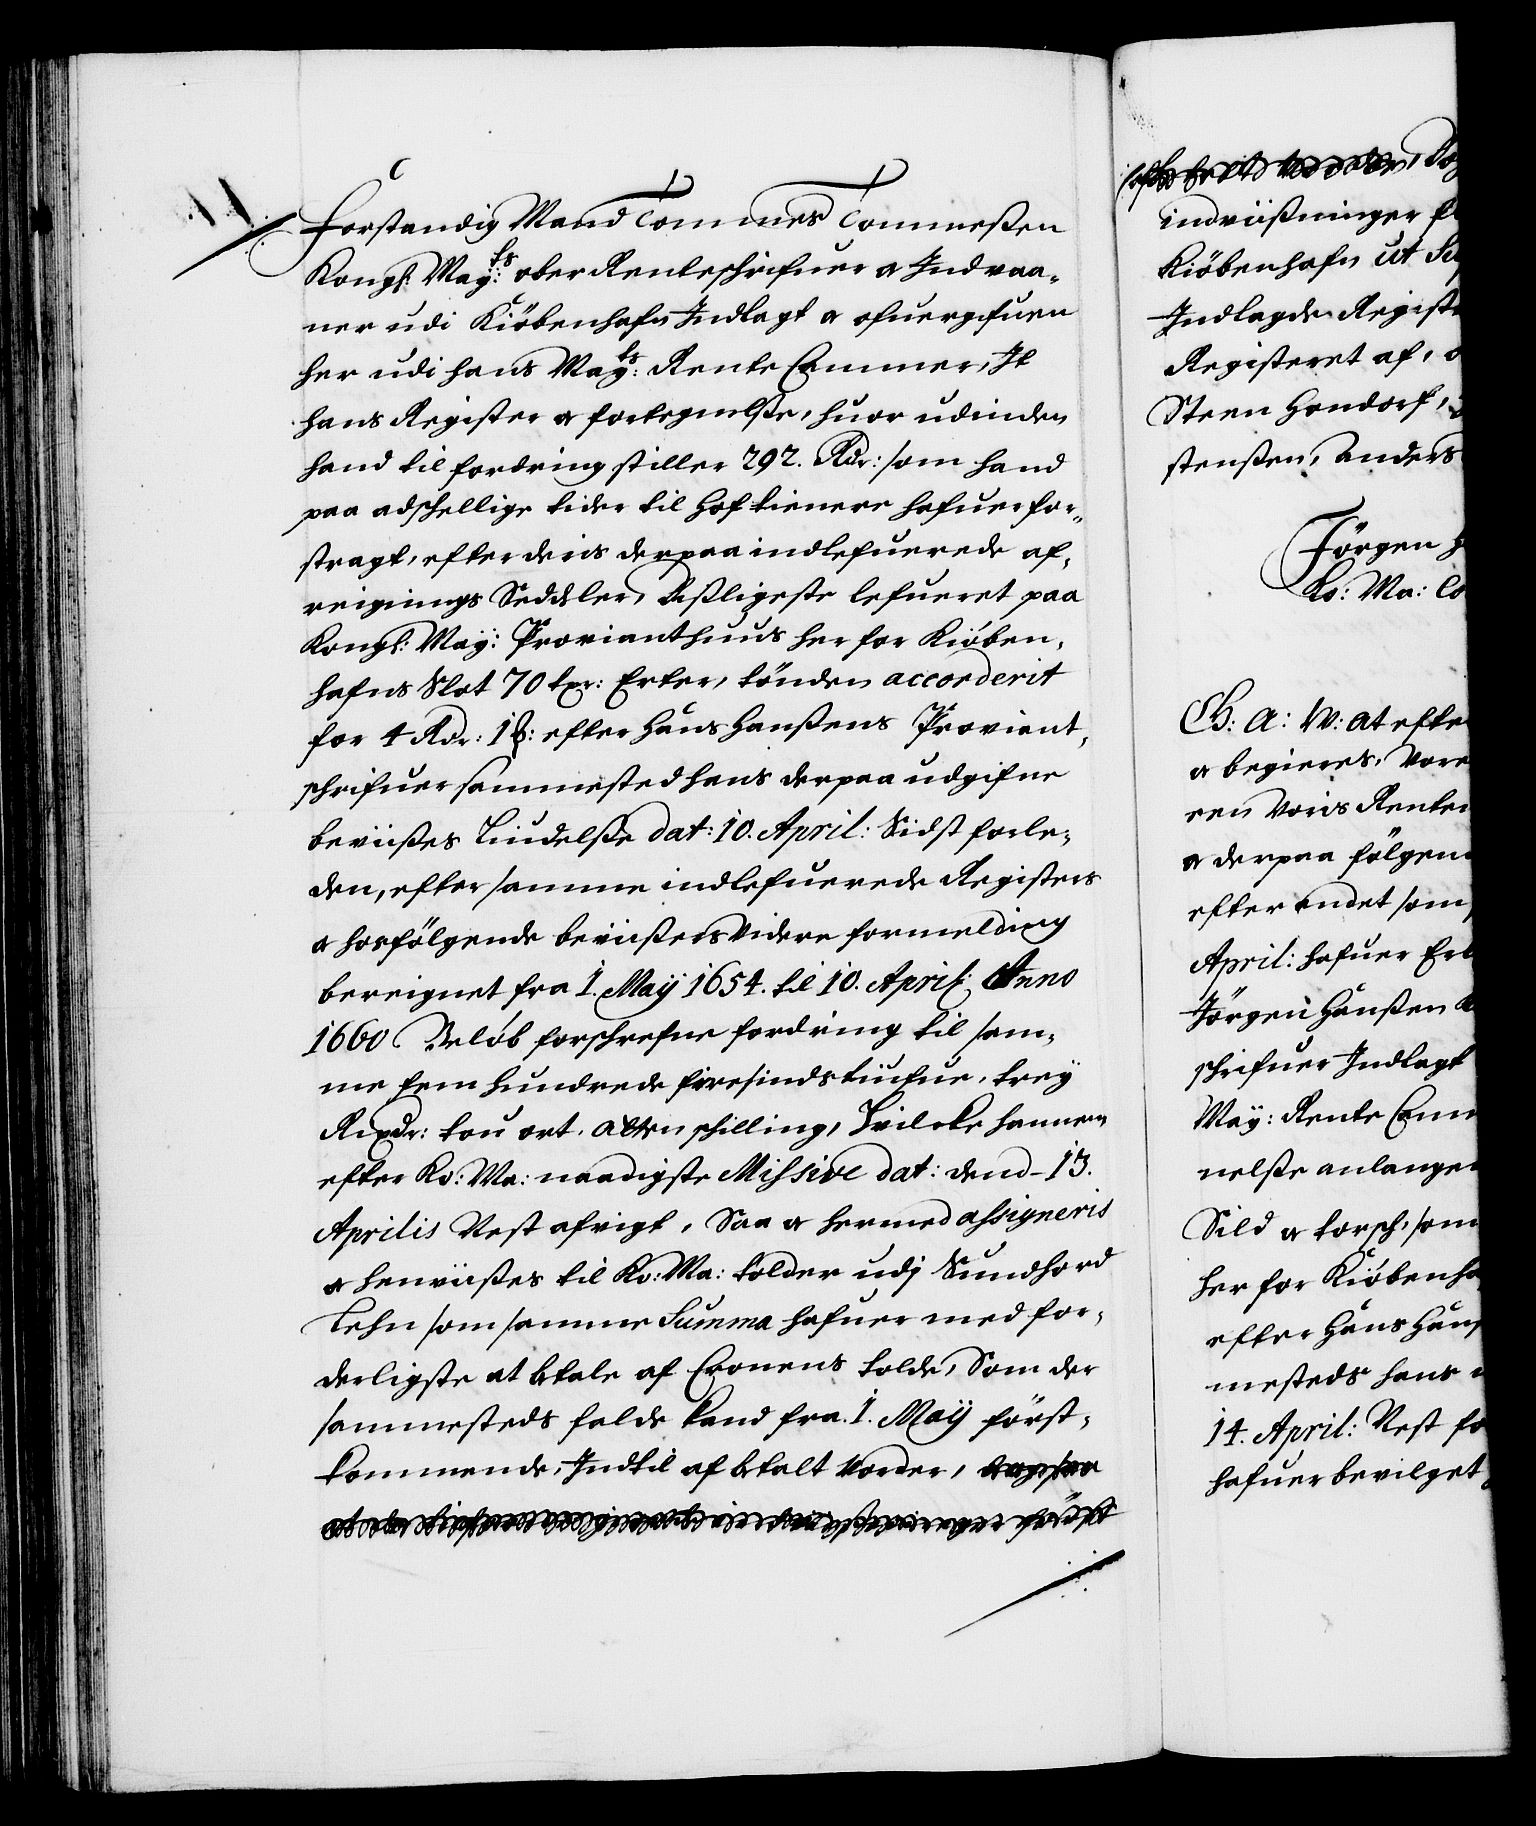 Forstandig Mand Tommes Tommeßen
Kongl: May:ts ober Renteschrifuer oc Indvaa,
ner udi Kiöbenhafn Indlagt oc ofuergifuen
her udi hans May:ts Rente Cammer, It
hans Register oc fortegnelße, huor udinden
hand til fordring stiller 292. Rdr: som hand
paa adschellige tider til Hoftienere hafuer for,,
stragt, efter deris derpaa indlefuerede af,
reignings Seddler, Dißligeste lefueret paa
Kongl: May: Provianthuus her for Kiöben,
hafns Slot 70 tyr: Erter, tönden accorderit
for 4 Rdr: 1 ß: efter Hans Hanßens Proviant,
schrifuer sammested hans derpaa udgifne
beviißes Liudelße dat: 10. April: Sidst forle,
den, efter samme indlefuerede Registers
oc hosfölgende beviißers Videre formelding
bereignet fra 1. Maÿ 1654. til 10. April: Anno
1660 Belöb forschrefne fordring til sam,
me fem hundrede firesindstiufue, treÿ
Rixdr: tou ort. Atten schilling, Hvilcke hannem
efter Ko: Ma: naadigste Missive dat: dend 13.
Aprilis Nest afvigt, Saa oc hermed assigneris
oc henviißes til Ko: Ma: tolder udj Sundhord
Lehn som samme Summa hafuer med for,
derligste at betale af Cronens tolde, Som der
sammesteds falde kand fra. 1. Maÿ först,
kommende, Indtil afbetalt vorder,
indviißninger
Kiöbenhafn ut
Indlagde
Registeret af,
Steen Hondorf,
stenßen, Anders
Jörgen
Ko: Ma:
G: A: W: at
oc begieres,
ren Voris
oc derpaa
efter andet som
April: hafuer
Jörgen Hanßen
schrifuer Indlagt
Maÿ: Rente
nelße
Sild oc torsch, som
her for
efter Hans
mesteds hans
14. April: Nest
hafuer bevilget